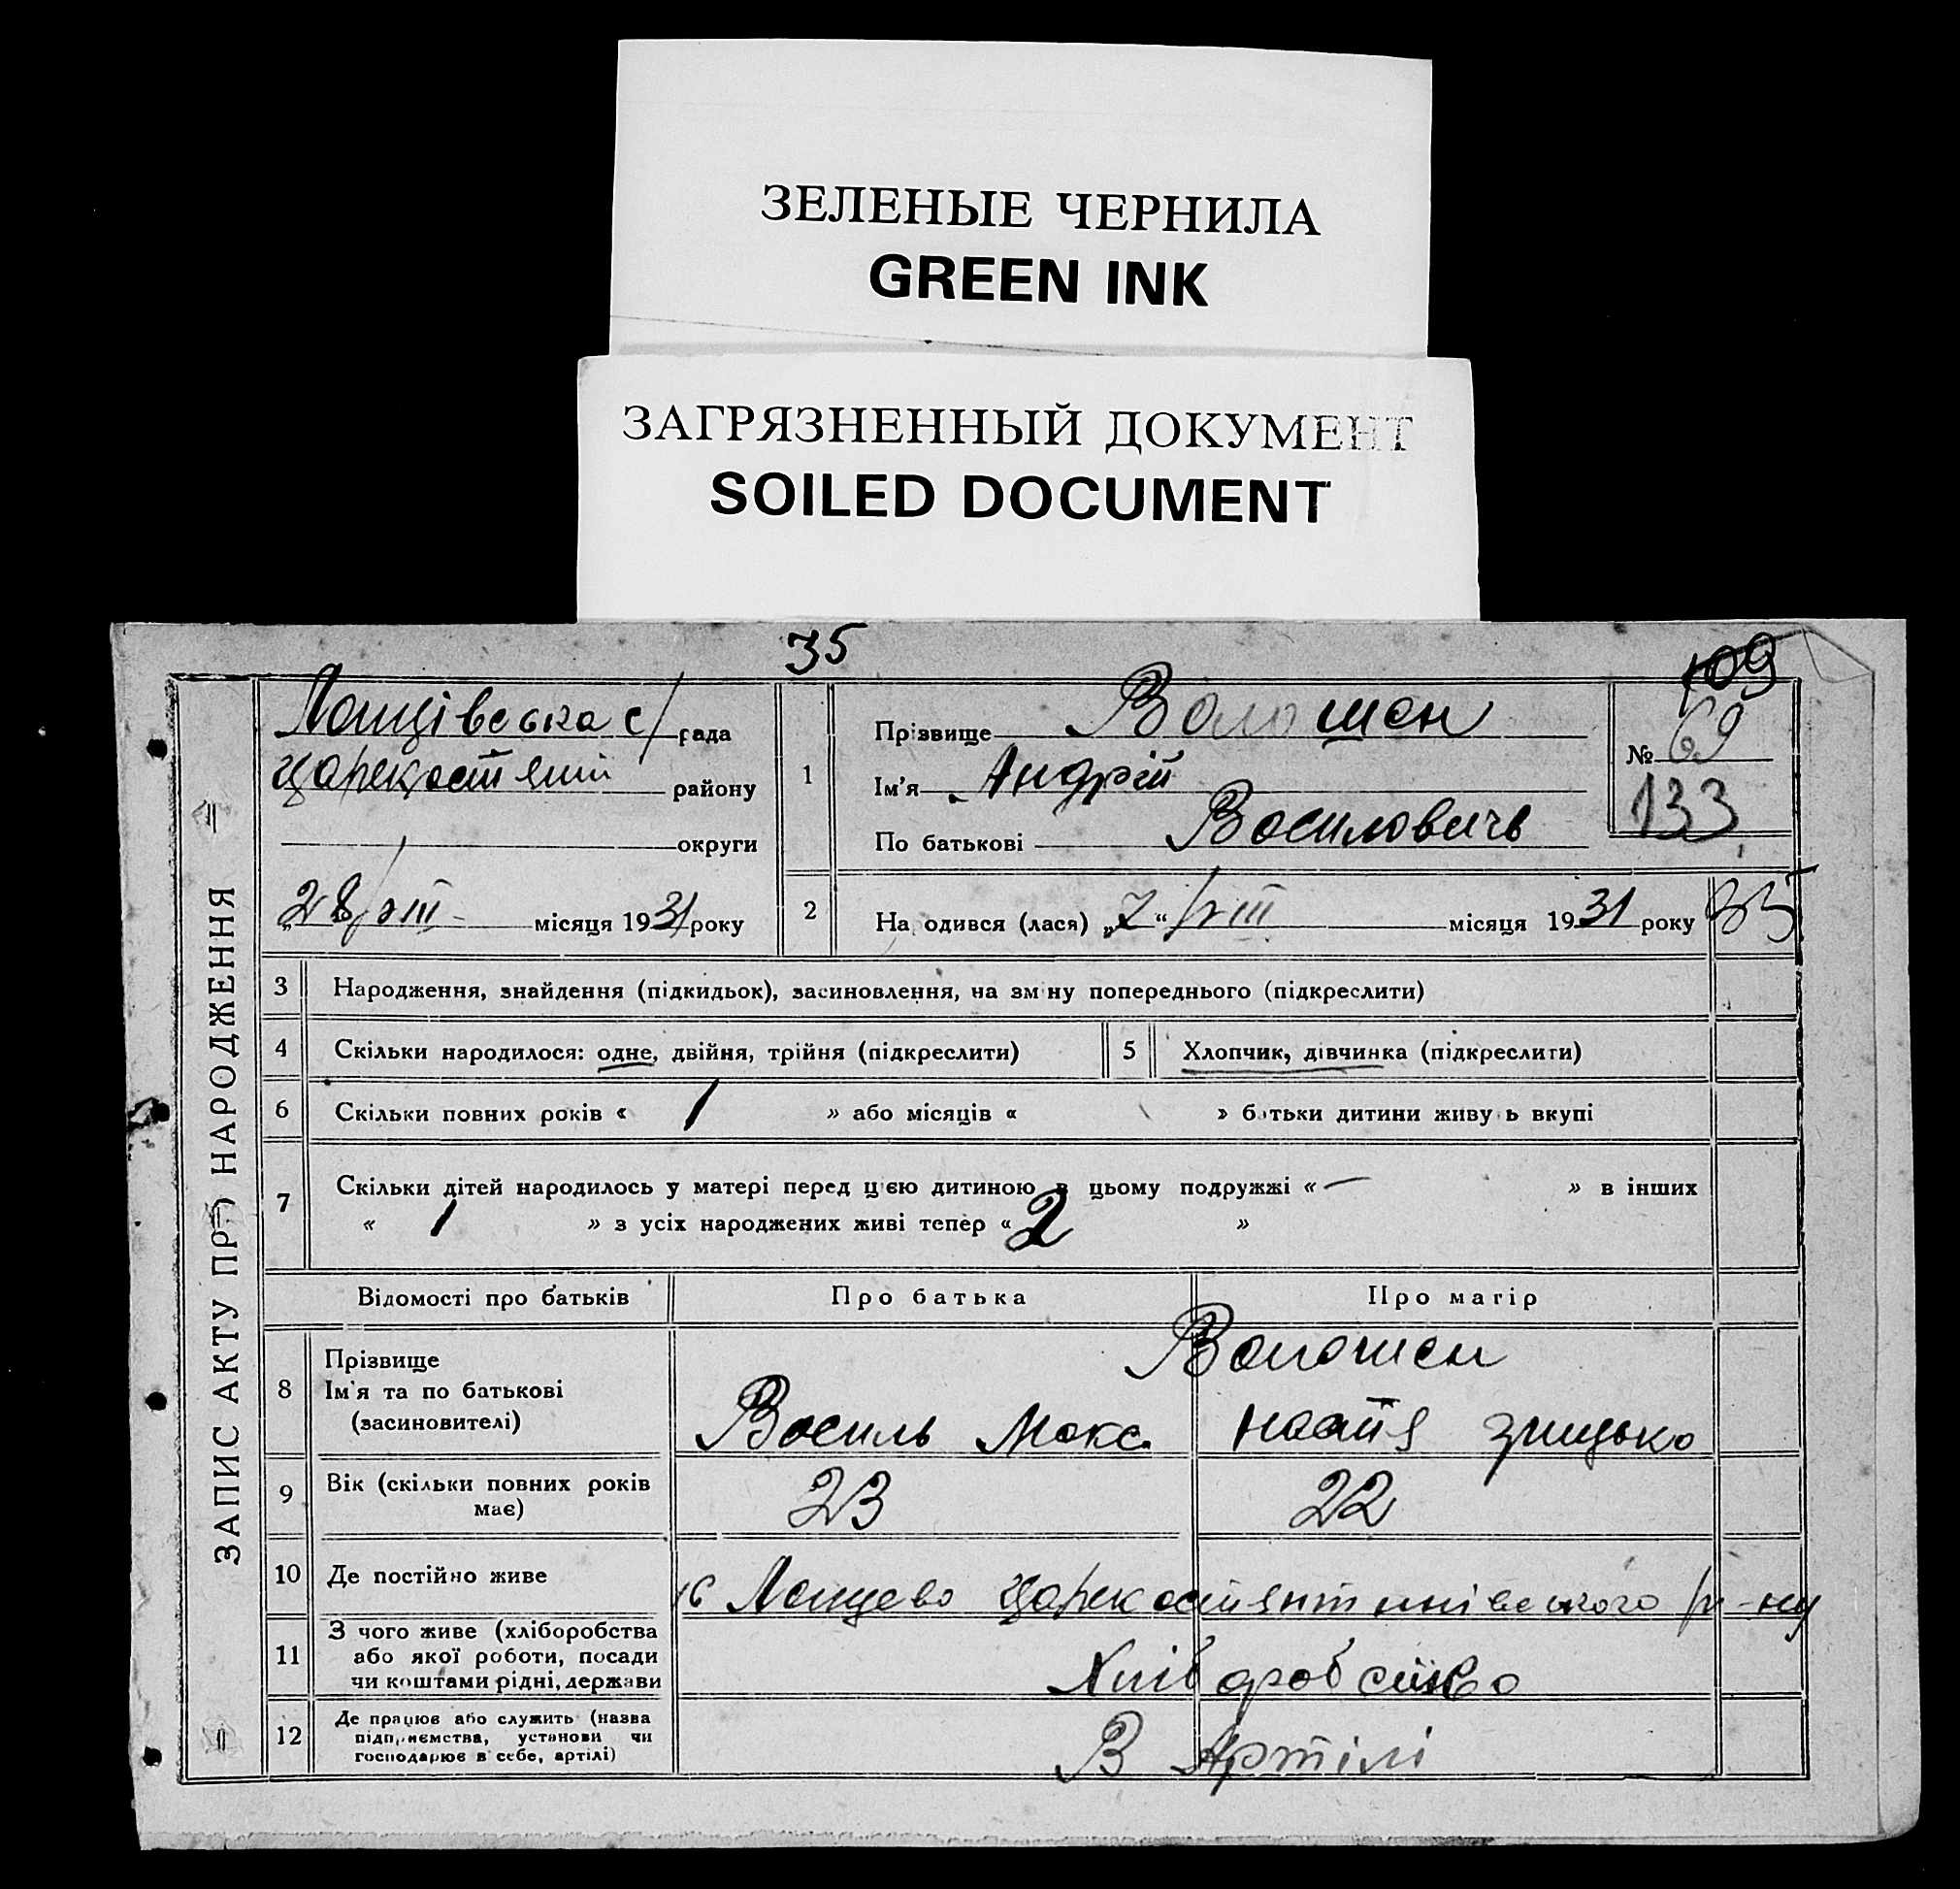 ЗЕЛЕНЫЕ ЧЕРНИЛА
GREEN INK
ЗАГРЯЗНЕННЫЙ ДОКУМЕНТ
SOILED DOCUMENT
35
109
ЗАПИС АКТУ ПРО НАРОДЖЕННЯ
Лащівська с/рада
району
округи
"28/VIII- місяця 1931 року
1
Прізвище Волошен
Ім'я Андрій
По батькові Василовичь
№ 69
133
2
Народився (лася) „7“ /VIII місяця 1931 року
35
3 Народження, знайдення (підкидьок), засиновлення, на зміну попереднього (підкреслити)
4 Скільки народилося: одне, двійня, трійня (підкреслити)
5 Хлопчик, дівчинка (підкреслити)
6 Скільки повних років « 1 » або місяців « » батьки дитини живуть вкупі
7 Скільки дітей народилось у матері перед цією дитиною в цьому подружжі « — » в інших
« 1 » з усіх народжених живі тепер « 2 »
Відомості про батьків Про батька Про матір
8 Прізвище
Ім'я та по батькові
(засиновителі)
Волошен
Василь Макс. Настя Грицько
9 Вік (скільки повних років має) 23 22
10 Де постійно живе с Лащево Царекостянтинівського р-ну
11 З чого живе (хліборобства
або якої роботи, посади
чи коштами рідні, держави
Хліборобство
12 Де працює або служить (назва
підприємства, установи чи
господарює в себе, артілі)
В Артілі